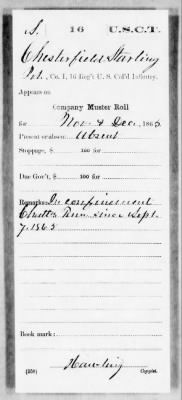 S. 16 U.S.C.T.
Chesterfield Starling
Pvt., Co. I, 16 Reg't U. S. Col'd Infantry.
Appears on
Company Muster Roll
for Nov. & Dec., 1865.
Present or absent Absent
Stoppage, $ 100 for
Due Gov't, $ 100 for
Remarks: In confinement
Chatta Tenn since Sept.
7. 1865
Book mark:
(358) Copyist.